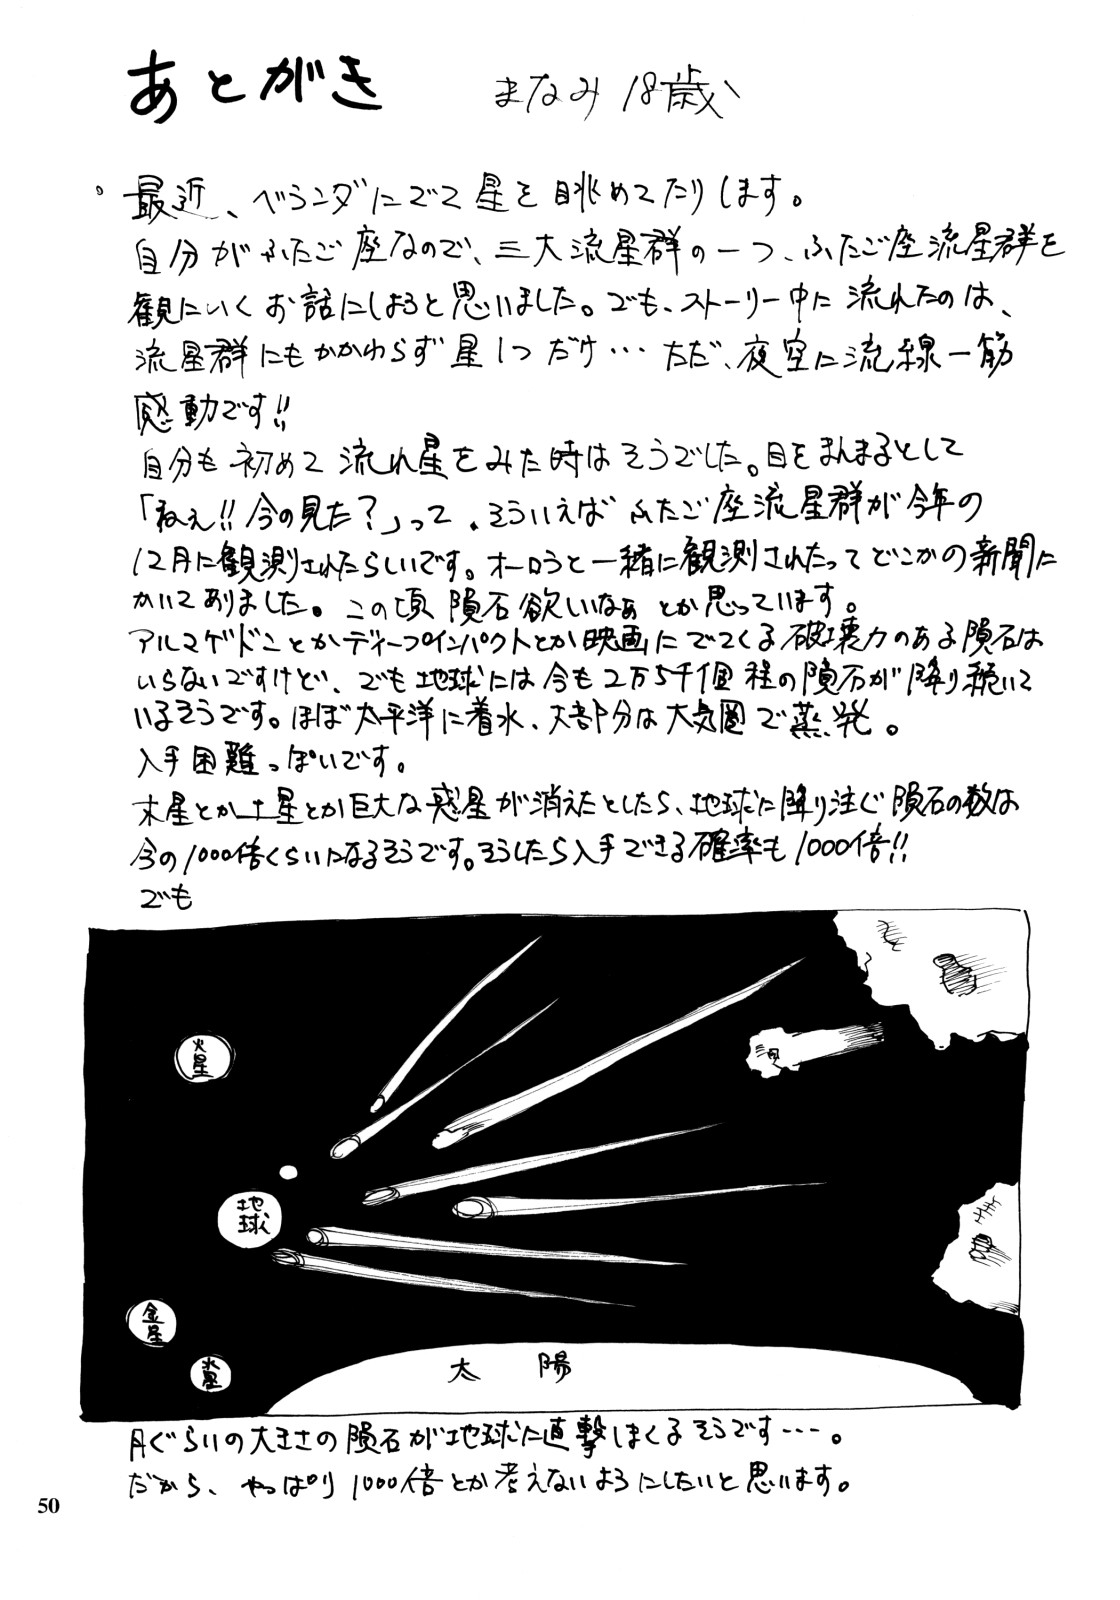 あとがき　まなみ 18歳
最近、ベランダにでて星を眺めてたりします。
自分がふたご座なので、三大流星群の一つ、ふたご座流星群を
観にいくお話にしようと思いました。でも、ストーリー中に流れたのは、
流星群にもかかわらず星1つだけ… ただ、夜空に流線一筋
感動です!!
自分も初めて流れ星をみた時はそうでした。目をまんまるとして
「ねぇ!!今の見た?」って。そういえばふたご座流星群が今年の
12月に観測されたらしいです。オーロラと一緒に観測されたってどこかの新聞に
かいてありました。この頃隕石欲しいなぁとか思っています。
アルマゲドンとかディープインパクトとか映画にでてくる破壊力のある隕石は
いらないですけど、でも地球には今も2万5千個程の隕石が降り続いて
いるそうです。ほぼ太平洋に着水、大部分は大気圏で蒸発。
入手困難っぽいです。
木星とか土星とか巨大な惑星が消えたとしたら、地球に降り注ぐ隕石の数は
今の1000倍くらいになるそうです。そうしたら入手できる確率も1000倍!!
でも
火星
地球
金星
水星
太陽
月ぐらいの大きさの隕石が地球に直撃しまくるそうです…。
だから、やっぱり1000倍とか考えないようにしたいと思います。
50